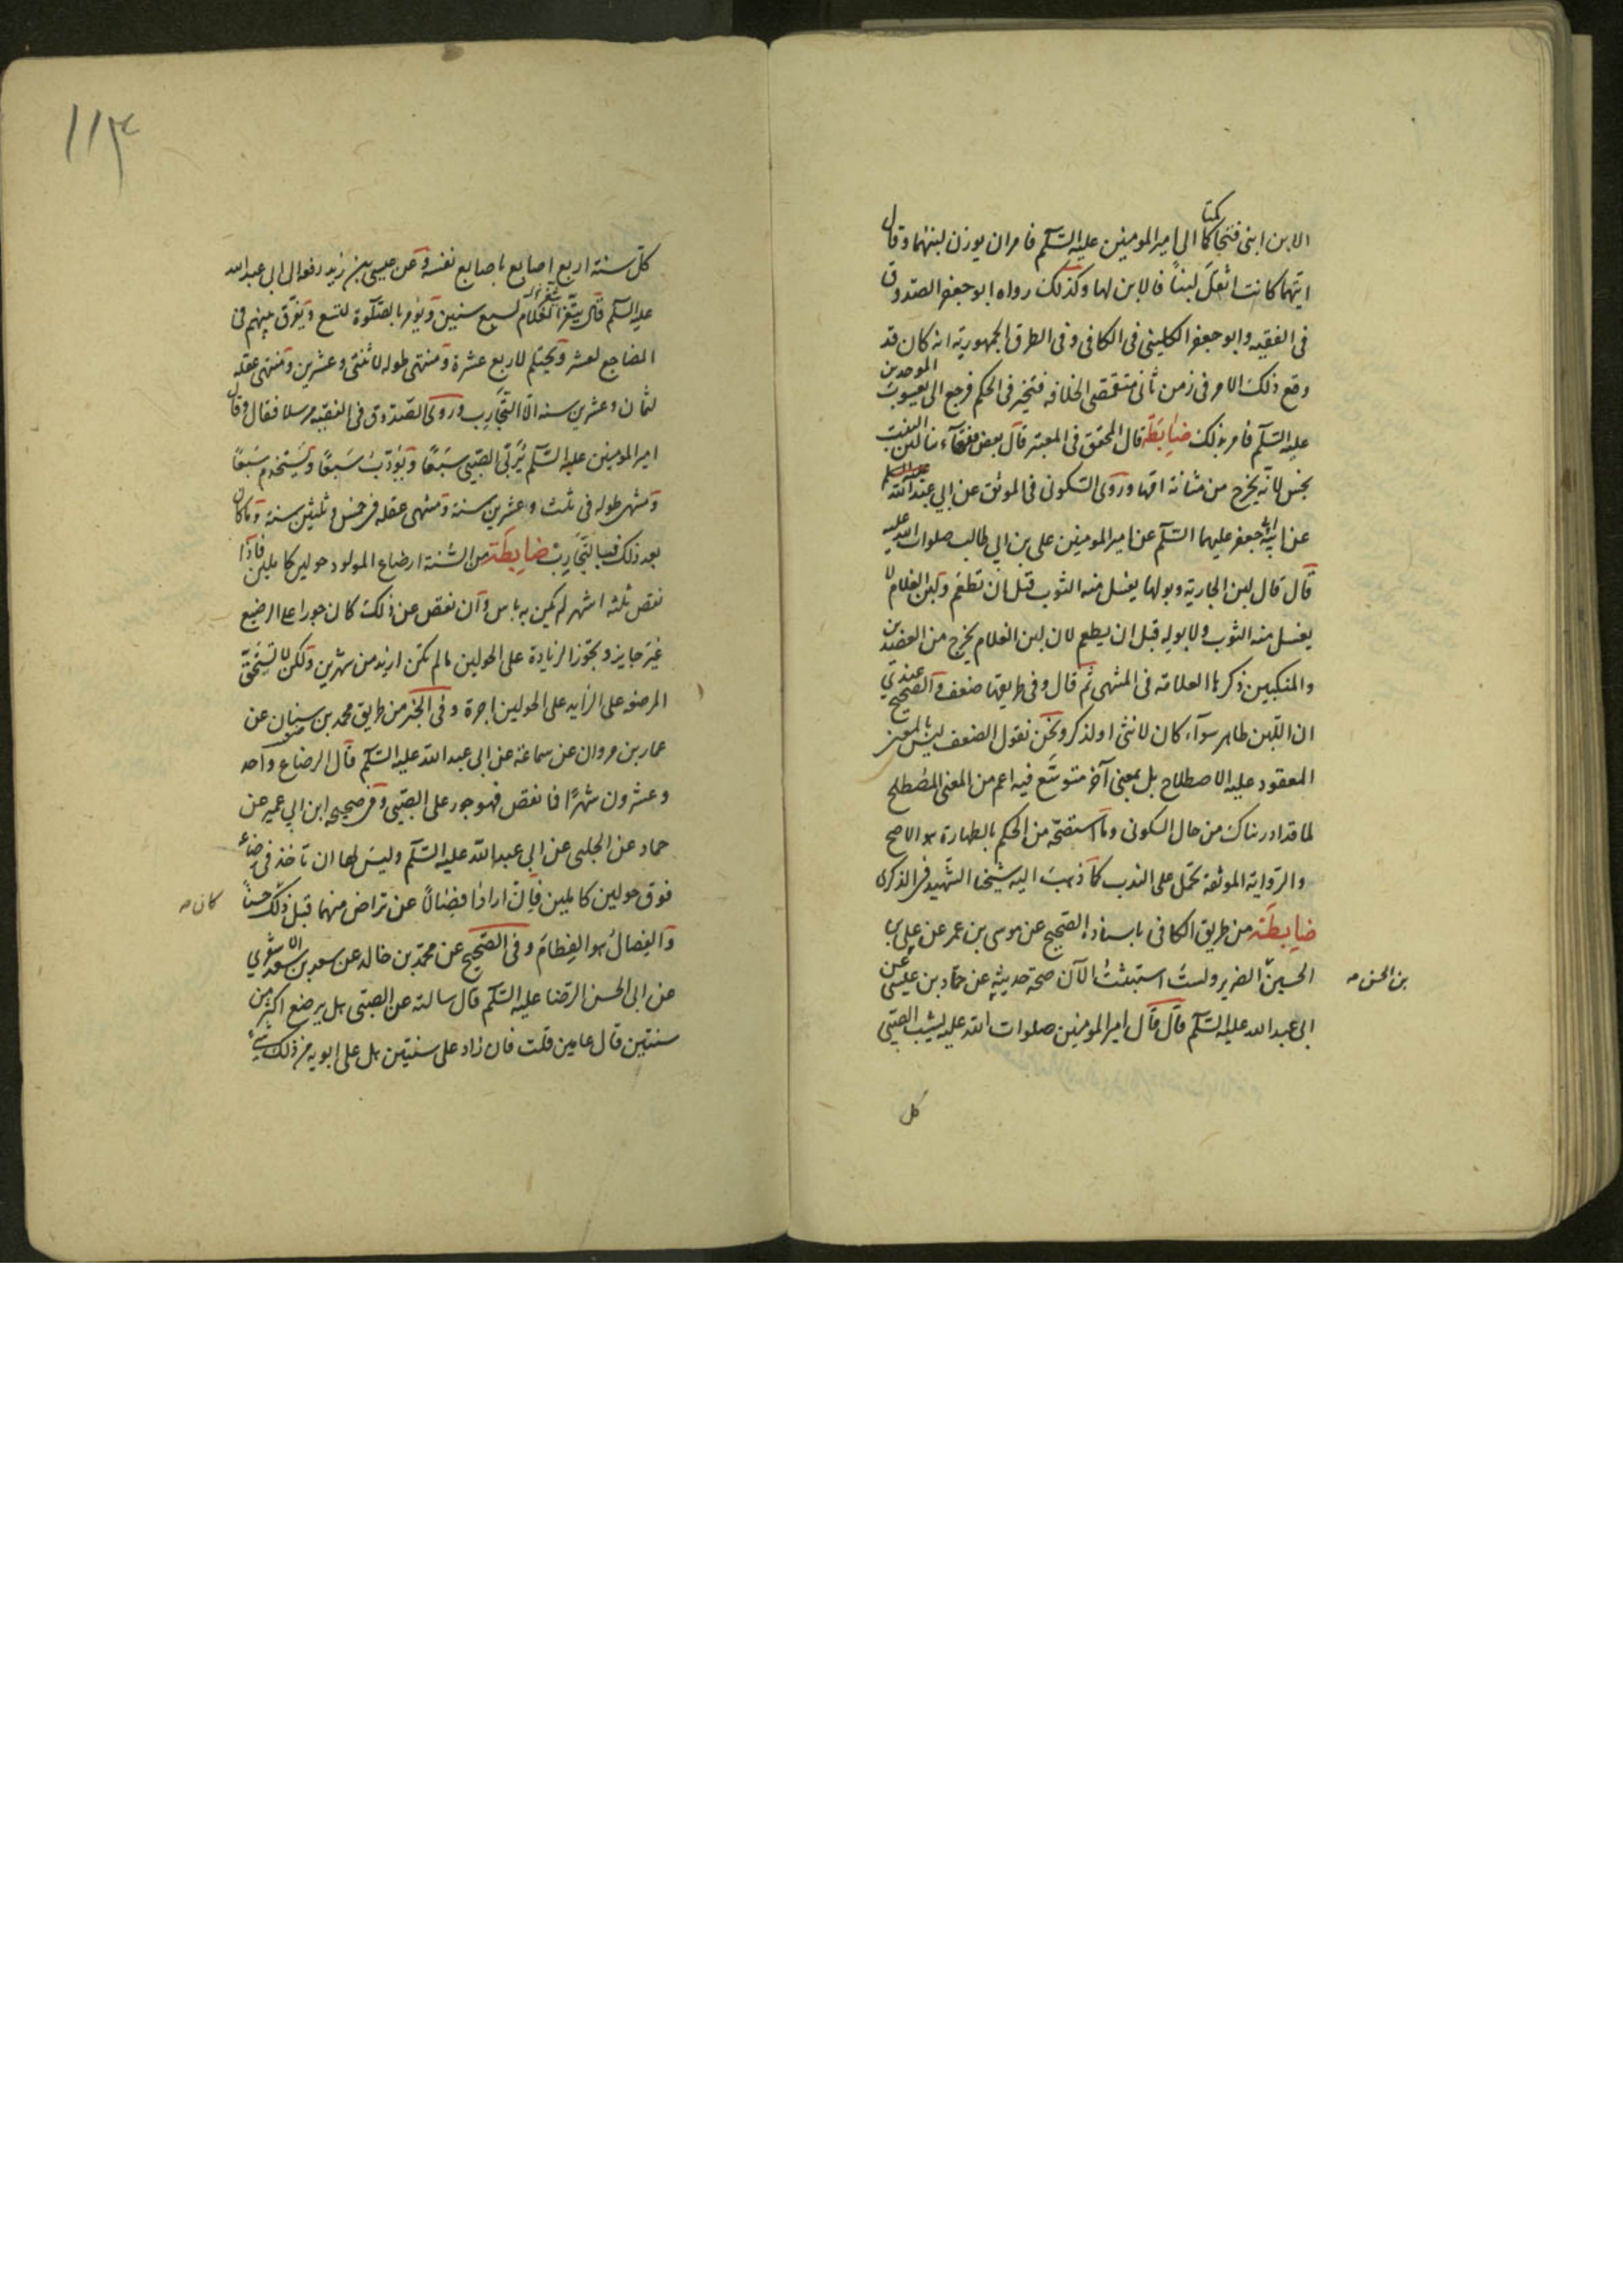 الابن ابنى فتحاكمتا الى امير المومنين عليه السّلم فامر ان يوزن لبنهما وقال
ايتهما كانت اثقل لبنًا فالابن لها وكذلك رواه ابو جعفر الصّدوق
فى الفقيه وابو جعفر الكلينى فى الكافى وفى الطرق الجمهورية انه كان قد
وقع ذلك الامر فى زمن ثانى متقمّصى الخلافه فتحيّر فى الحكم فرجع الى يعسوب الموحدين
عليه السّلم فامر بذلك ضابطة قال المحقق فى المعتبر قال بعض فقهاء نا لبن البنت
نجس لانّه يخرج من مثانة امّها وروى السّكونى فى الموثق عن ابي عبد الله
عن ابيه ابى جعفر عليهما السّلم عن امير المومنين على بن ابي طالب صلوات الله عليه
قال قال لبن الجارية وبولها يغسل منه الثوب قبل ان تطعم ولبن الغلام لا
يغسل منه الثوب ولا بوله قبل ان يطعم لان لبن الغلام يخرج من العضدين
والمنكبين ذكرها العلامه فى المنتهى ثم قال وفى طريقها ضعف والصحيح عندي
ان اللّبن طاهر سوآء كان لانثى او لذكر ونحن نقول الضعف ليس بالمعنى
المعقود عليه الاصطلاح بل بمعنى آخر متوسّع فيه اعم من المعنى المصطلح
لما قد ادريناك من حال السكونى وما استصحّه من الحكم بالطهارة هو الاصح
والرّواية الموثقة تحمل على الندب كما ذهب اليه شيخنا الشّهيد فى الذكرى
ضابطة من طريق الكافى باسناده الصّحيح عن موسى بن عمر عن على بن
الحسين الضرير ولست استثبت الآن صحة حديثه عن حمّاد بن عيسى عن
بن الحسن صه
ابى عبد الله عليه السّلم قال قال امير المومنين صلوات الله عليه يشب الصّبى
كل
١١٣
كلّ سنة اربع اصابع باصابع نفسه وعن عيسى بن زيد رفعه الى ابى عبد الله
عليه السّلم قال يثّغر الغلام لسبع سنين ويؤمر بالصّلوة لتسع ويفرّق بينهم فى
المضاجع لعشر ويحتلم لاربع عشرة ومنتهى طوله لاثنتى وعشرين ومنتهى عقله
لثمان وعشرين سنه الّا التّجارب وروى الصّدوق فى الفقيه مرسلا فقال وقال
امير المومنين عليه السّلم يُربّى الصّبى سَبعًا ويؤدّب سَبعًا ويُستخدم سَبعًا
ومنتهى طوله فى ثلث وعشرين سنة ومنتهى عقله فى خمس وثلثين سنة وما كان
بعد ذلك فبالتجارب ضابطة من السُّنة ارضاع المولود حولين كاملين فاذا
نقص ثلثه اشهر لم يكن به باس وان نقص عن ذلك كان جورا على الرضيع
غير جايز ويجوز الزيادة على الحولين مالم يكن ازيد من شهرين ولكن لا تستحق
المرضعه على الزايد على الحولين اجرة وفى الخبر من طريق محمد بن سنان عن
عمار بن مروان عن سماعة عن ابى عبد الله عليه السّلم قال الرضاع واحد
وعشرون شهرًا فما نقص فهو جور على الصّبى وفى صحيحه ابن ابي عمير عن
حماد عن الحلبى عن ابي عبد الله عليه السّلم وليس لها ان تاخذ فى رضاعه
فوق حولين كاملين فان ارادا فصالًا عن تراض منهما قبل ذلك حسنًا
كان صه
والفصال هو الفطام وفى الصّحيح عن محمّد بن خالد عن سعد بن سعد الاشعري
عن ابى الحسن الرّضا عليه السّلم قال سالته عن الصّبى هل يرضع اكثر من
سنتين قال عامين قلت فان زاد على سنتين هل على ابويه من ذلك شيء